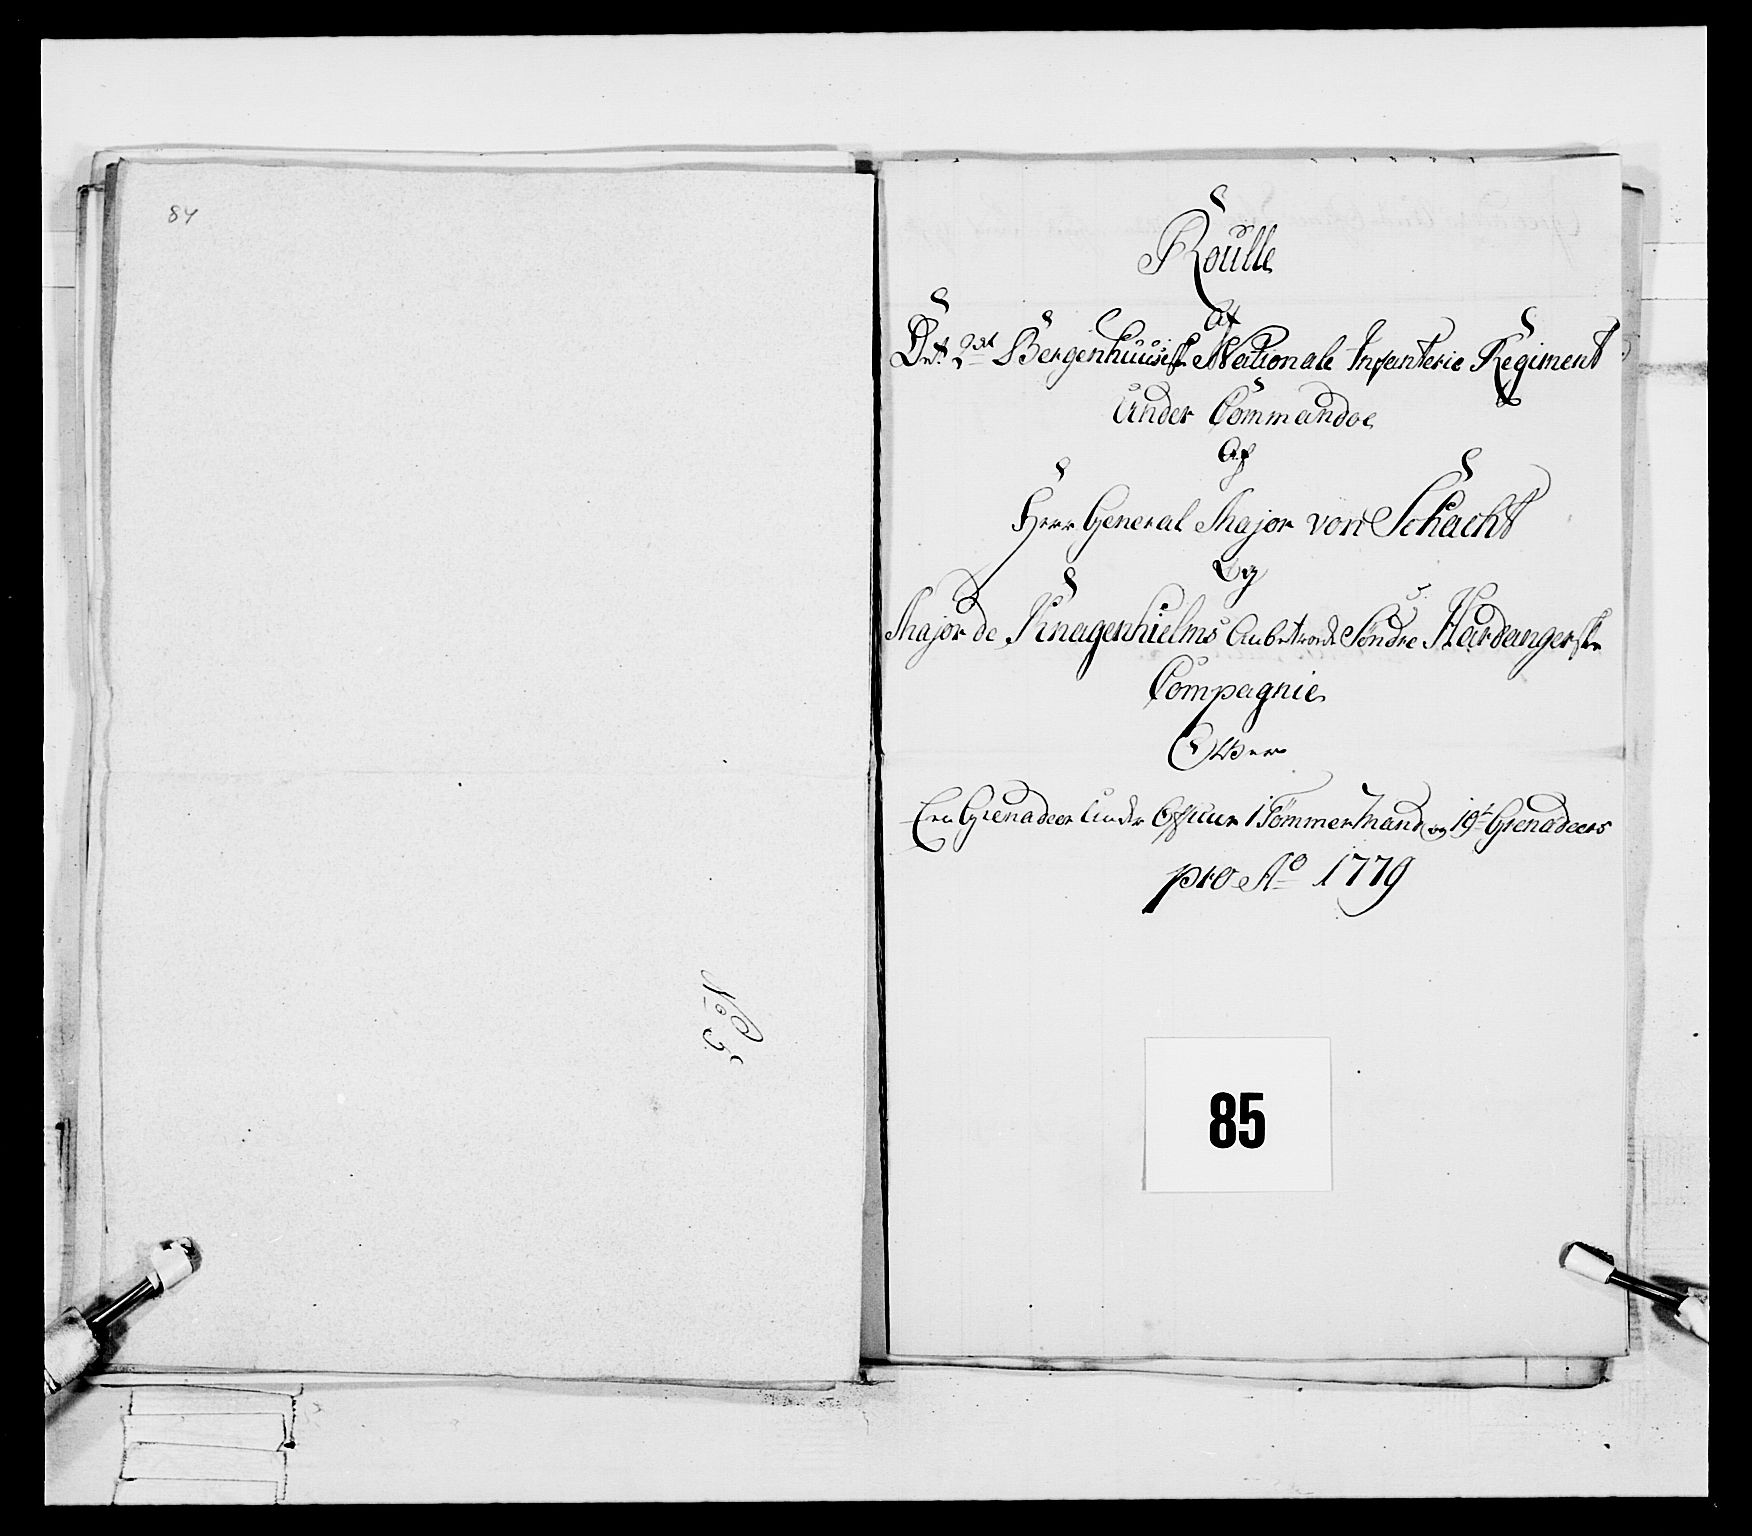 84
No 5
Roulle
Af
Det 2det Bergenhuusiske Nationale Infanterie Regiment
Under Commandoe
Af
Herr General Major von Schacht
Og
Major de Knagenhielms Anbetroede Söndre Hardangerske
Compagnie
Over
Een Grenadeer Under Officeer 1 Tömmer Mand og 19 Grenadeers
pro Ao 1779
85